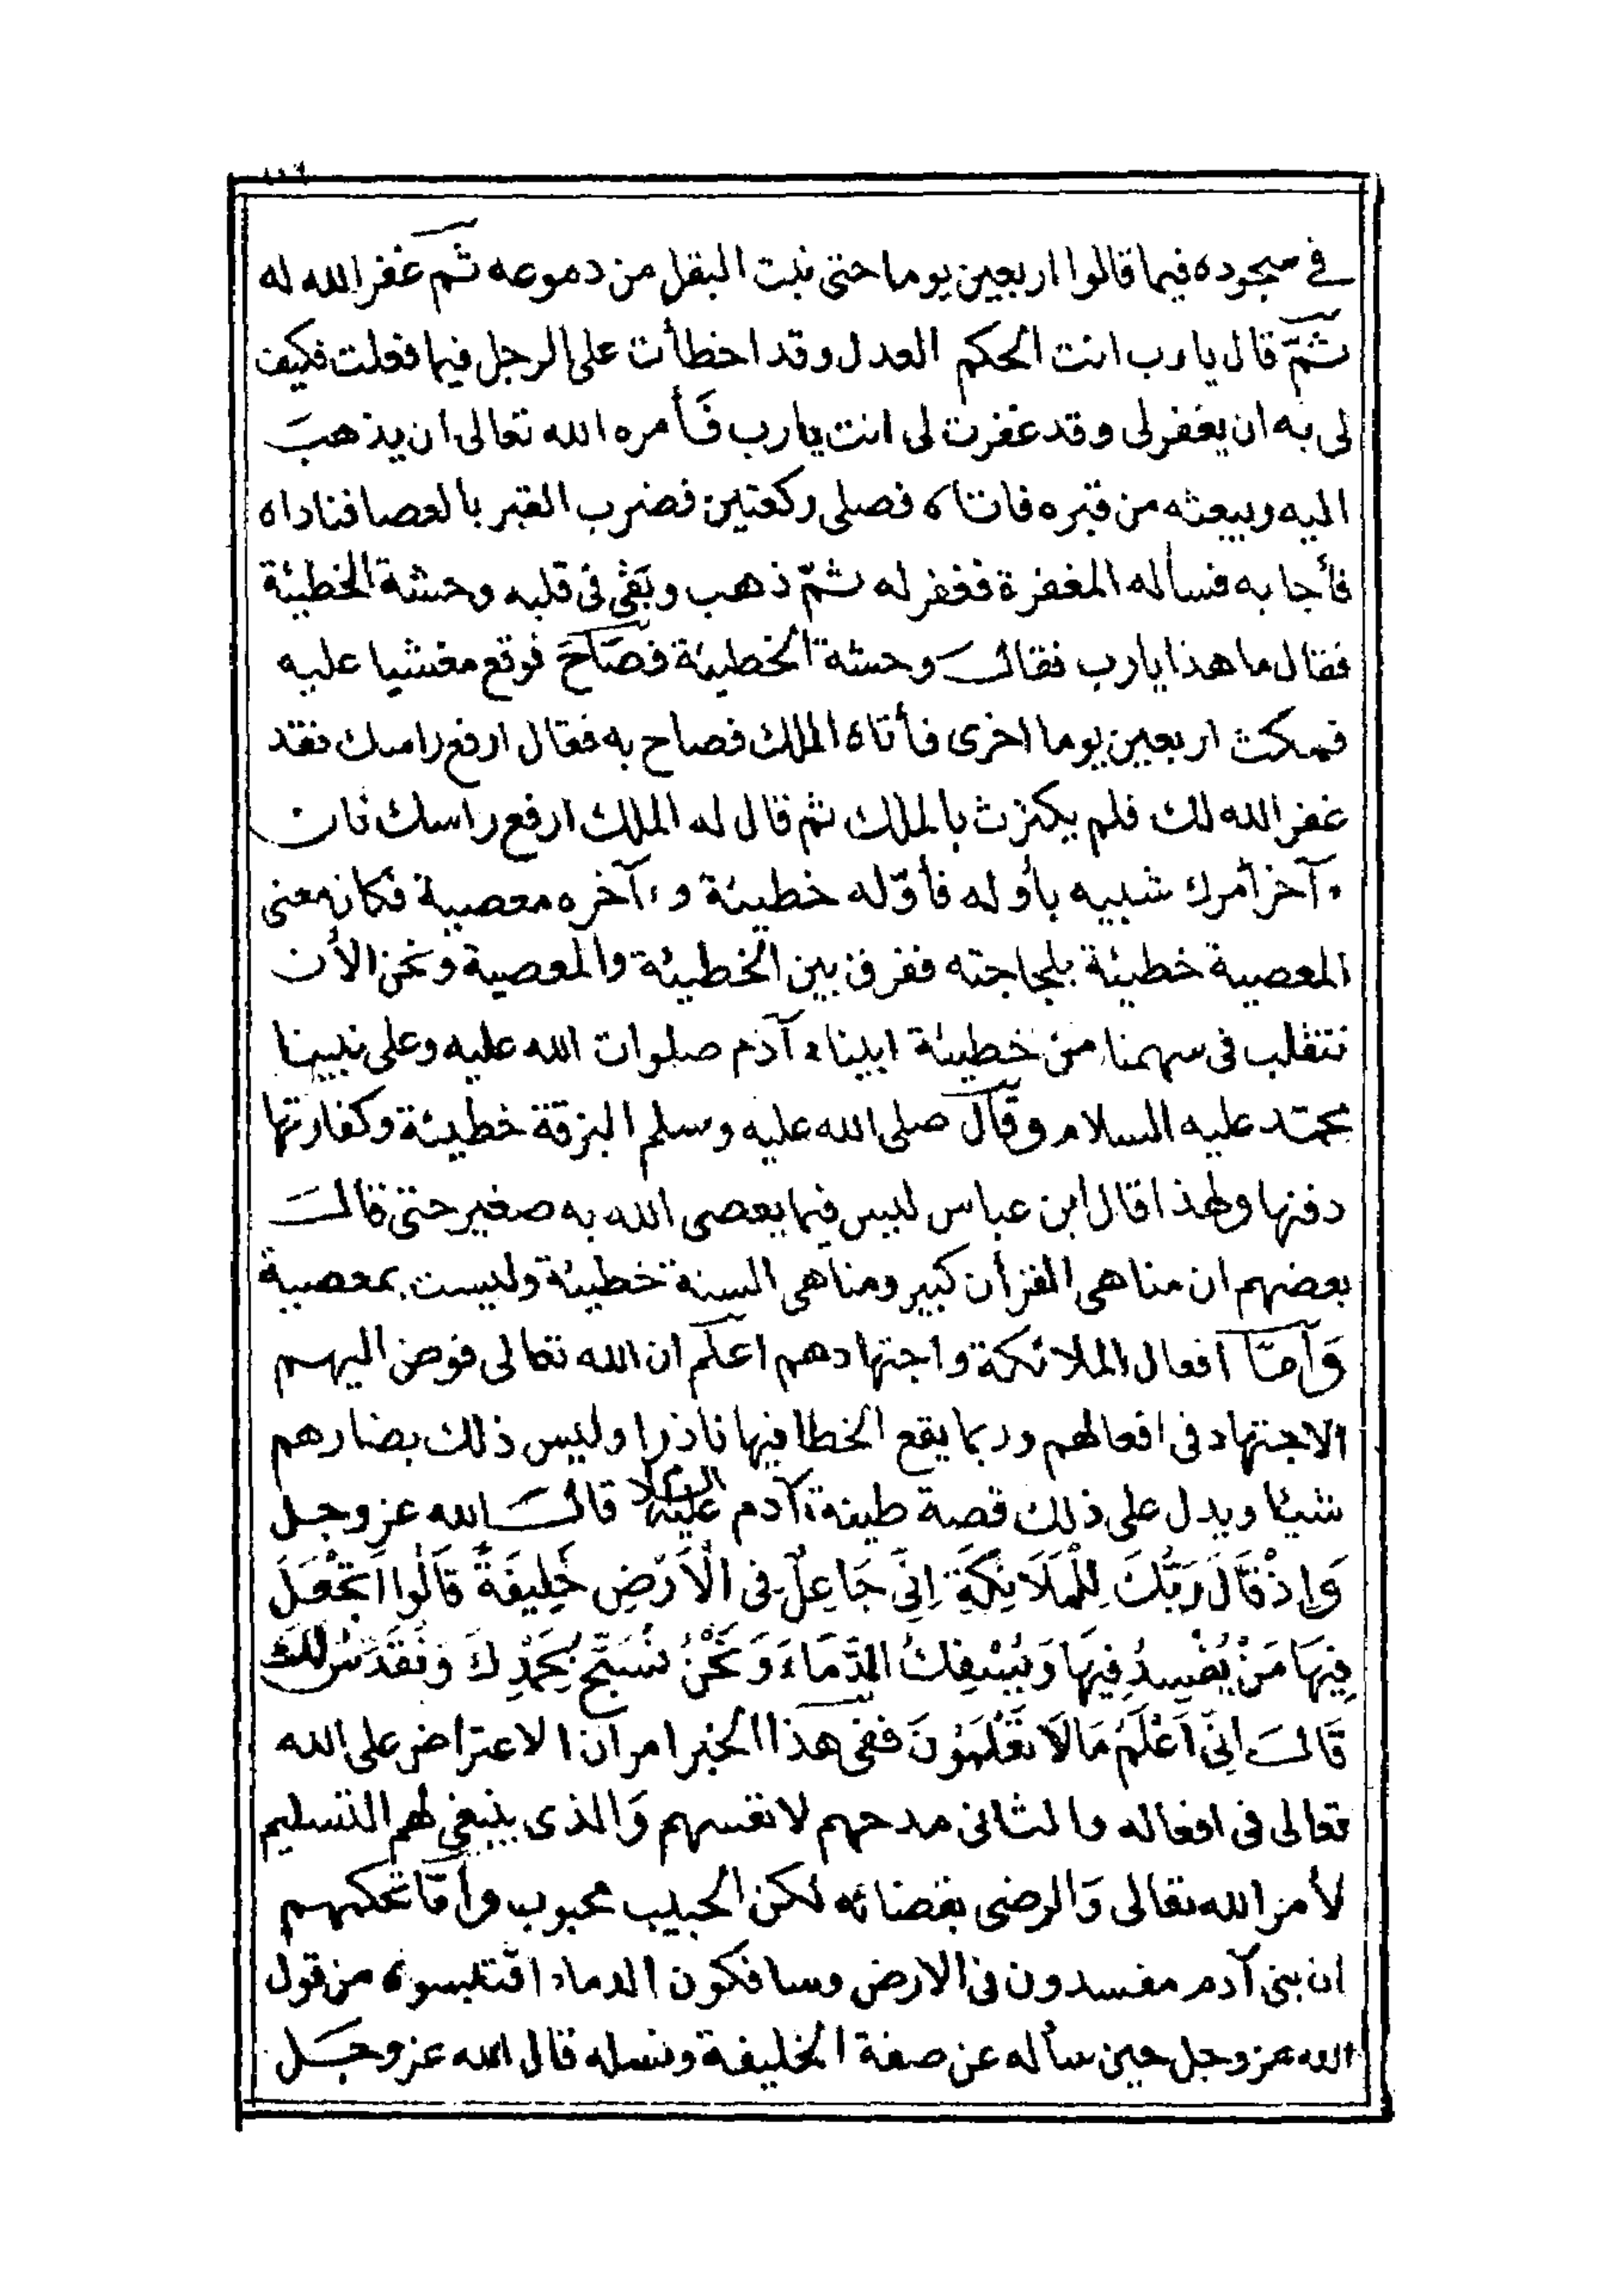 في سجوده فيما قالوا اربعين يوما حتى نبت البقل من دموعه ثم غفر الله له
ثمّ قال يا رب انت الحكم العدل وقد اخطأت على الرجل فيما فعلت فكيف
لى به ان يغفر لى وقد غفرت لى انت يا رب فَأمره الله تعالى ان يذهبَ
اليه ويبعثه من قبره فاتاه فصلى ركعتين فضرب القبر بالعصا فناداه
فأجابه فسأله المغفرة فغفر له ثمّ ذهب وبَقى فى قلبه وحشة الخطيئة
فقال ما هذا يا رب فقالَ وحشة الخطيئة فصَاحَ فوقع مغشيا عليه
فمكث اربعين يوما اخرى فأتاه الملك فصاح به فقال ارفع راسك فقد
غفر الله لك فلم يكترث بالملك ثم قال له الملك ارفع راسك فان
ءآخر أمرك شبيه بأوله فأوّله خطيئة وءآخره معصية فكانه معنى
المعصية خطيئة بلجاجته ففرق بين الخطيئة والمعصية ونحن الأن
نتقلب فى سهمنا من خطيئة ابيناء آدم صلوات الله عليه وعلى نبيينا
محمّد عليه السلام وقَالَ صلى الله عليه وسلم البزقة خطيئة وكفارتها
دفنها ولهذا قال ابن عباس ليس فيما يعصى الله به صغير حتى قالَ
بعضهم ان مناهى القرأن كبير ومناهى السنة خطيئة وليست بمعصية
وَأمّا افعال الملائكة واجتهادهم اعلَم ان الله تعالى فوض اليهم
الاجتهاد فى افعالهم وربما يقع الخطا فيها نادرا وليس ذلك بضارهم
شيئا ويدل على ذلك قصة طينة ءآدم عليه السلا قالَ الله عز وجل
وَاِذْ قَالَ رَبُّكَ لِلْمَلَائِكَةِ اِنِّى جَاعِلٌ فى الْاَرْضِ خَلِيفَةً قَالُوا اَتَجْعَلَ
فِيهَا مَنْ يُفْسِدُ فِيهَا وَيُسْفِكُ الدِّمَاءَ وَنَحْنُ نُسَبِّحُ بِحَمْدِكَ وَنُقَدِّسُ لَكَ
قَالَ اِنِّى اَعْلَمُ مَا لَا تَعْلَمُونَ ففى هذا الخبر امران الاعتراض على الله
تعالى فى افعاله والثانى مدحهم لانفسهم وَالذى ينبغى لهم التسليم
لأمر الله تعالى وَالرضى بقضائه لكن الحبيب محبوب وأمّا تحكمهم
ان بنى آدم مفسدون فى الارض وسافكون الدماء اقتبسوه من قول
الله عز وجل حين سأله عن صفة الخليفة ونسله قال الله عز وجَل